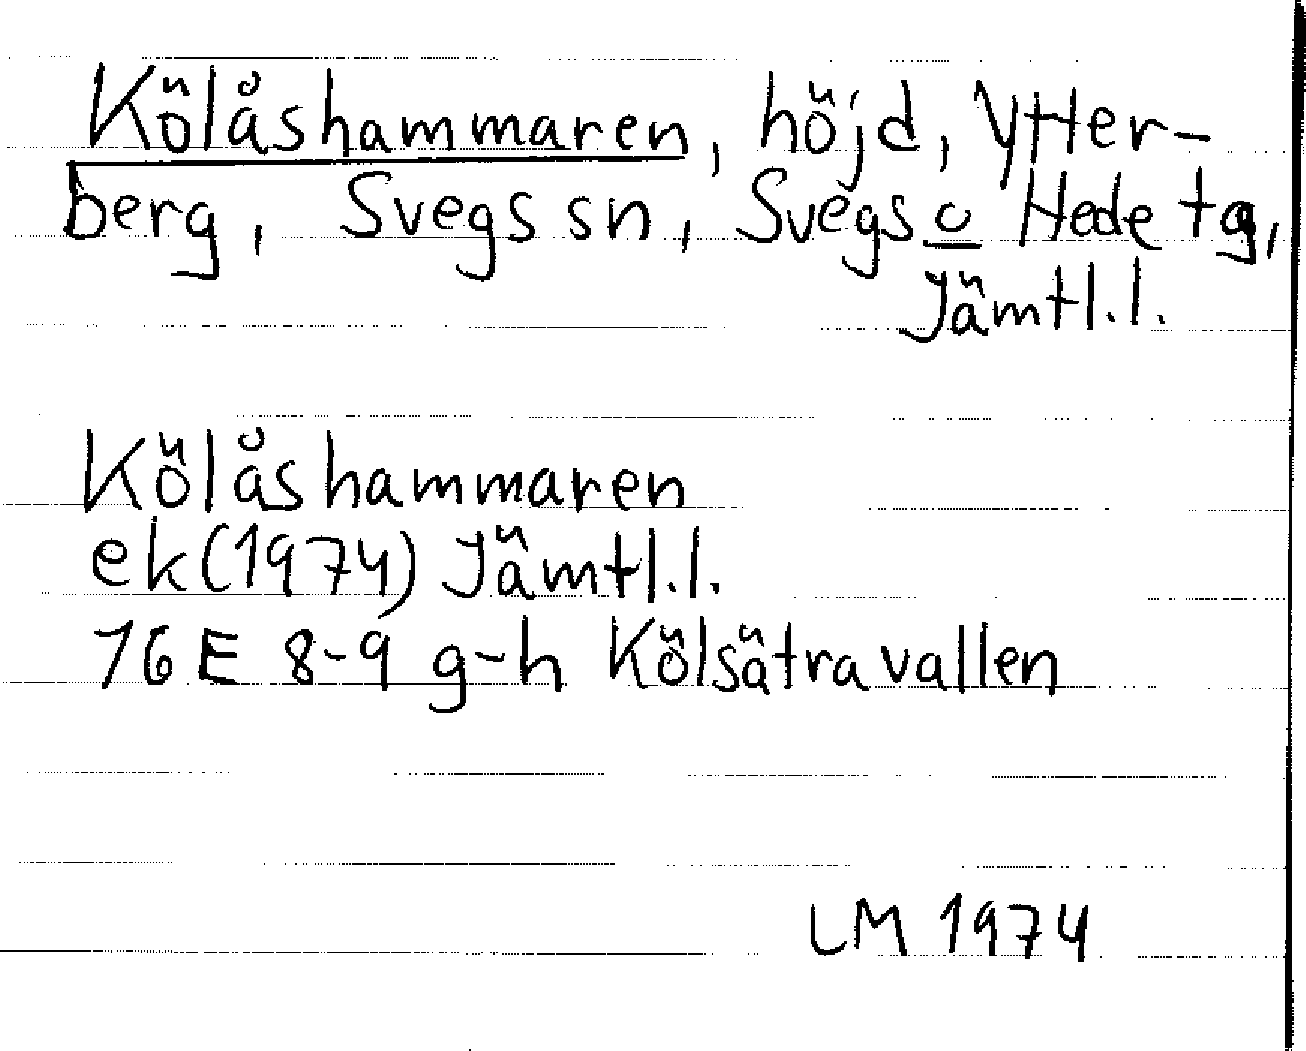 Kölåshammaren, höjd, Ytter-
berg, Svegs sn, Svegs o Hede tg,
Jämtl.l.
Kölåshammaren
ek(1974) Jämtl.l.
16 E 8-9 g-h Kölsätravallen
LM 1974